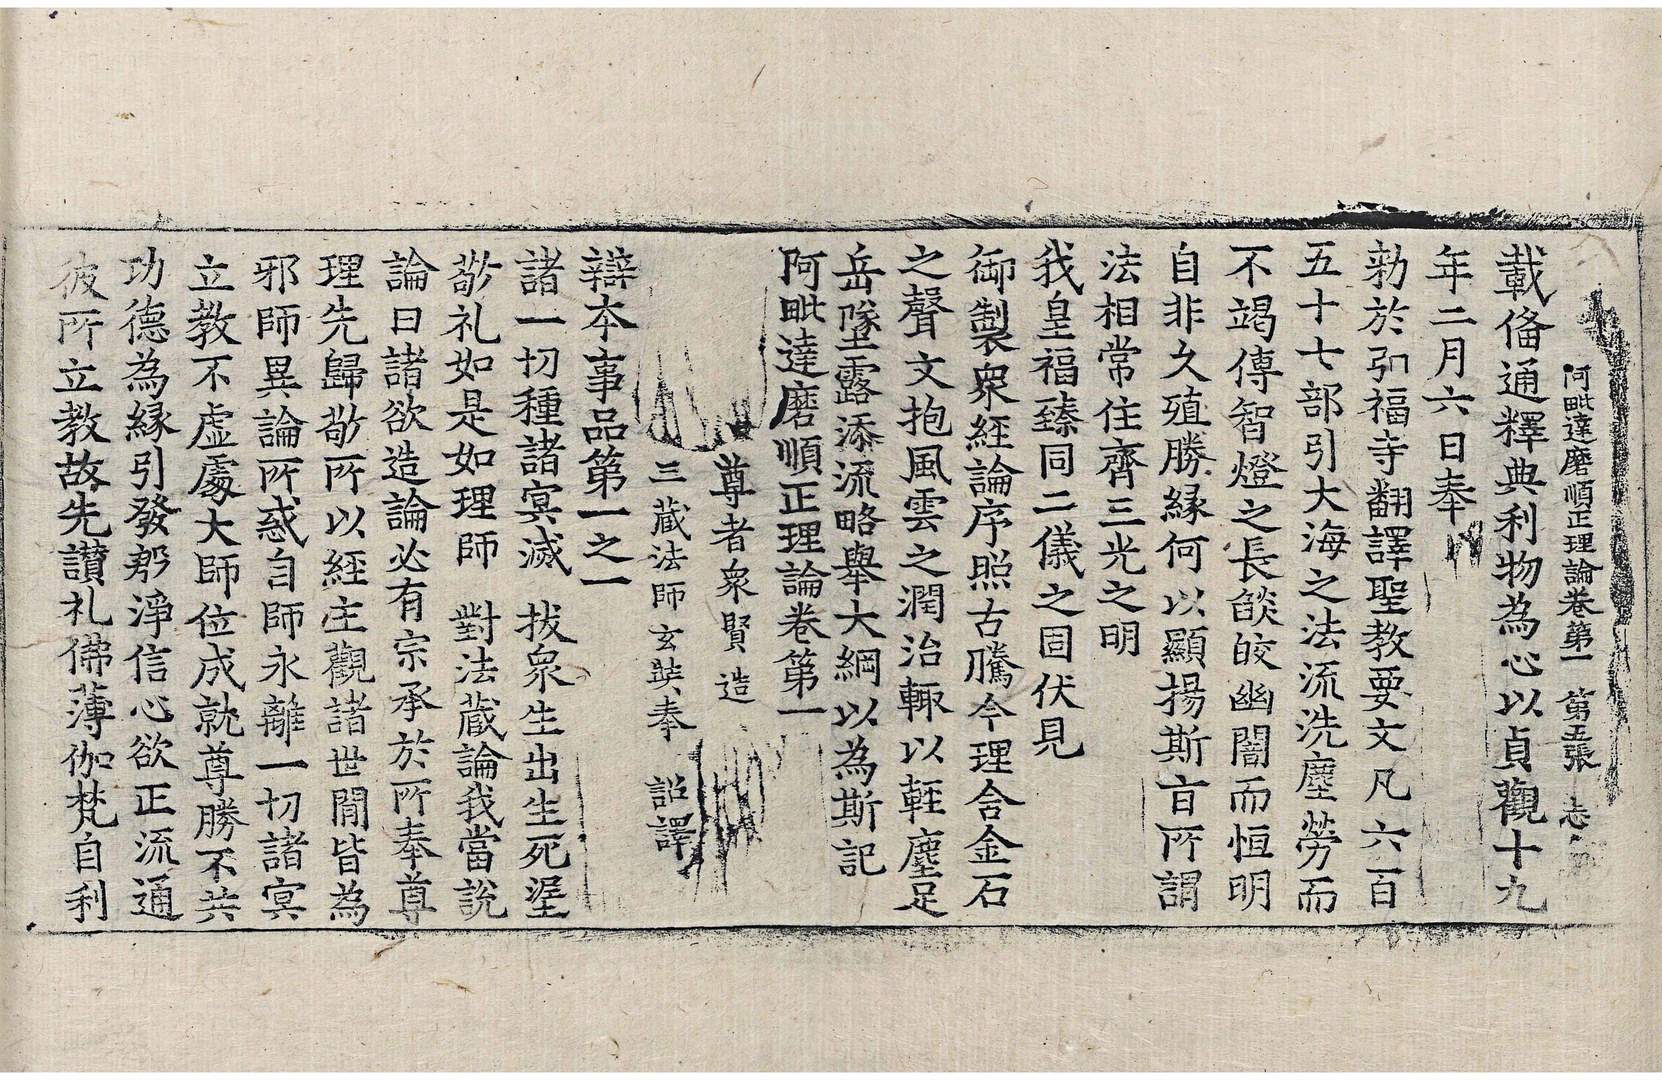 阿毗達磨順正理論卷第一　第五張　志
載俻通釋典利物為心以貞觀十九
年二月六日奉
勑於弘福寺翻譯聖教要文凡六百
五十七部引大海之法流洗塵勞而
不竭傳智燈之長燄皎幽闇而恒明
自非久殖勝緣何以顯揚斯旨所謂
法相常住齊三光之明
我皇福臻同二儀之固伏見
御製衆經論序照古騰今理含金石
之聲文抱風雲之潤治輙以輕塵足
岳墜露添流略舉大綱以為斯記
阿毗達磨順正理論卷第一
尊者衆賢造
三藏法師玄奘奉　詔譯
辯本事品第一之一
諸一切種諸冥滅　拔衆生出生死埿
敬礼如是如理師　對法藏論我當說
論曰諸欲造論必有宗承於所奉尊
理先歸敬所以經主觀諸世間皆為
邪師異論所惑自師永離一切諸冥
立教不虛處大師位成就尊勝不共
功德為緣引發郗淨信心欲正流通
彼所立教故先讃礼佛薄伽梵自利